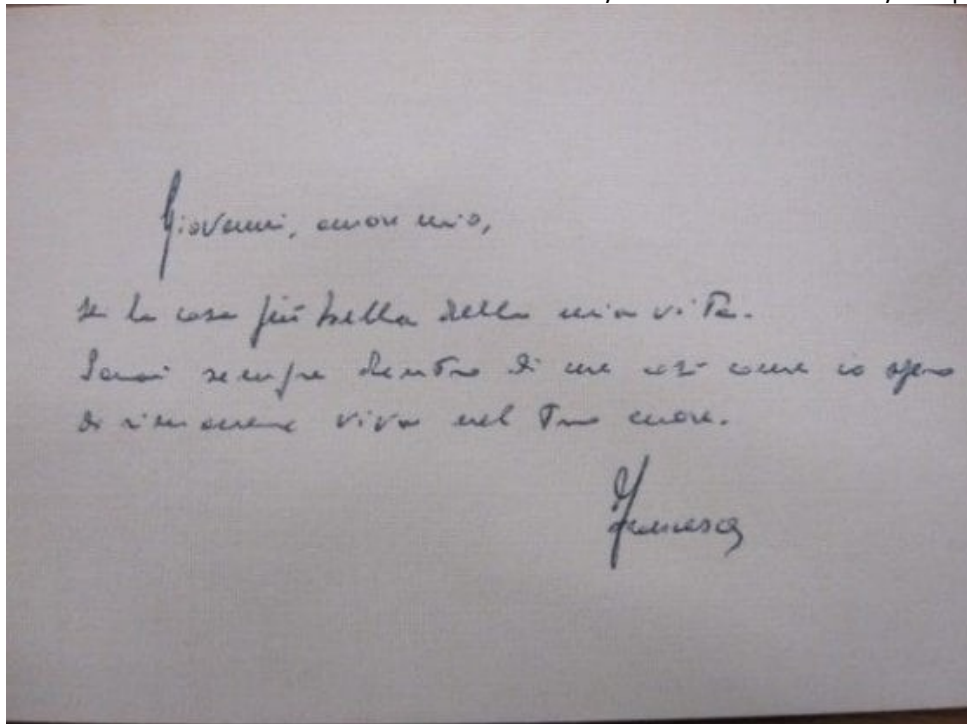 Giovanni, amore mio,
sei la cosa più bella della mia vita.
Sarai sempre dentro di me così come io spero
di rimanere viva nel Tuo cuore.
Francesca